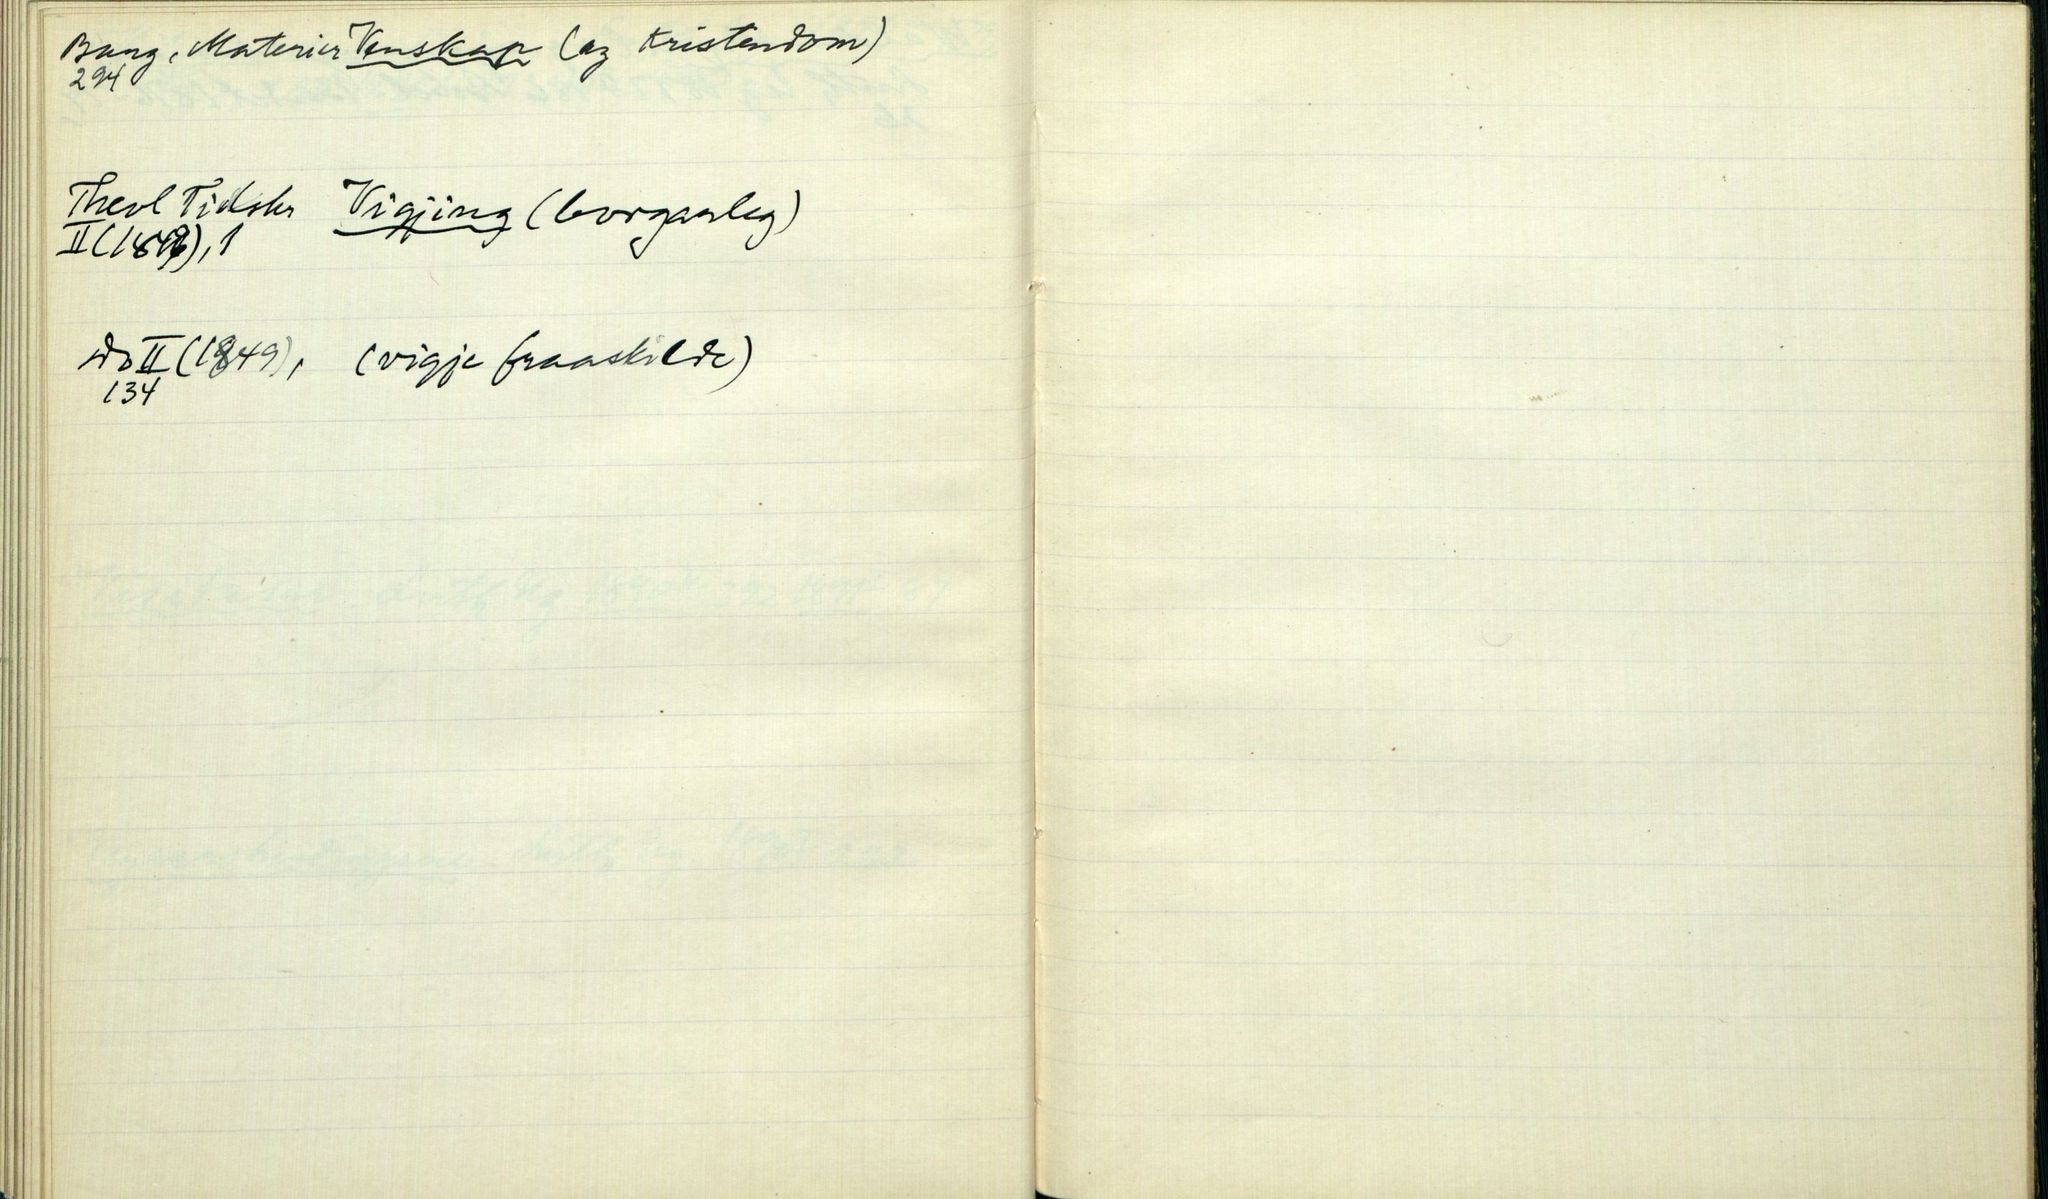 Bang, Materier Venskap (og Kristendom)
294
Theol Tidskr Vigjing (borgarleg)
II (1849), 1
do II (1849), (vigje fraaskilde)
134